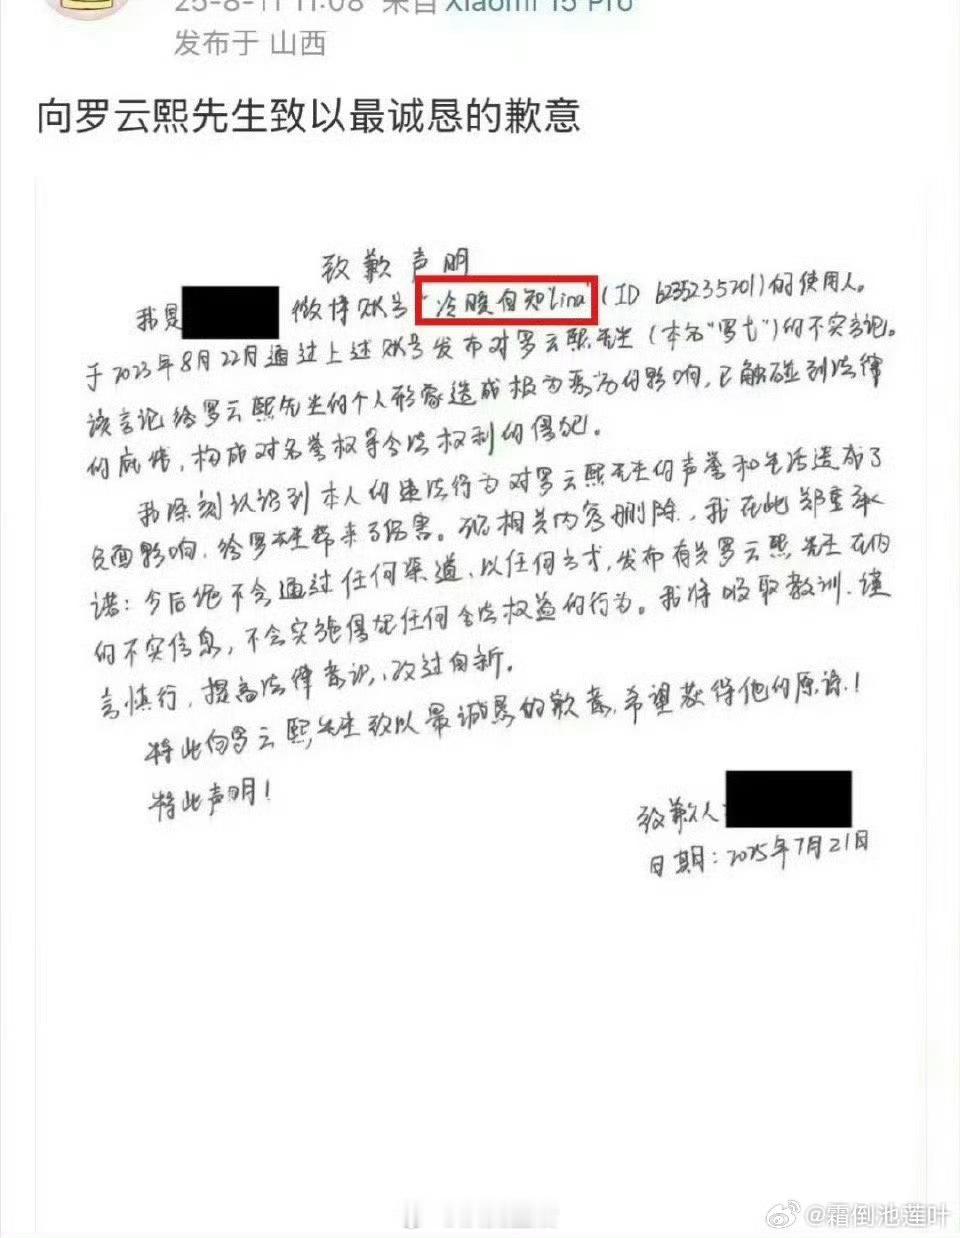 25-8-11 11:08 来自 Xiaomi 15 Pro
发布于 山西
向罗云熙先生致以最诚恳的歉意
致歉声明
我是 微博账号"冷暖自知Lina"(ID 6235235201)的使用人。
于2023年8月22日通过上述账号发布对罗云熙先生(本名"罗弋")的不实言论。
该言论给罗云熙先生的个人形象造成极为恶劣的影响,已触碰到法律
的底线,构成对名誉权等合法权利的侵犯。
我深刻认识到本人的违法行为对罗云熙先生的声誉和生活造成了
负面影响,给罗先生带来了伤害。现相关内容删除,我在此郑重承
诺:今后绝不会通过任何渠道、以任何方式,发布有关罗云熙先生在内
的不实信息,不会实施侵犯任何合法权益的行为。我将吸取教训、谨
言慎行,提高法律意识,改过自新。
特此向罗云熙先生致以最诚恳的歉意,希望获得他的原谅!
特此声明!
致歉人:
日期:2025年7月21日
@霜倒池莲叶